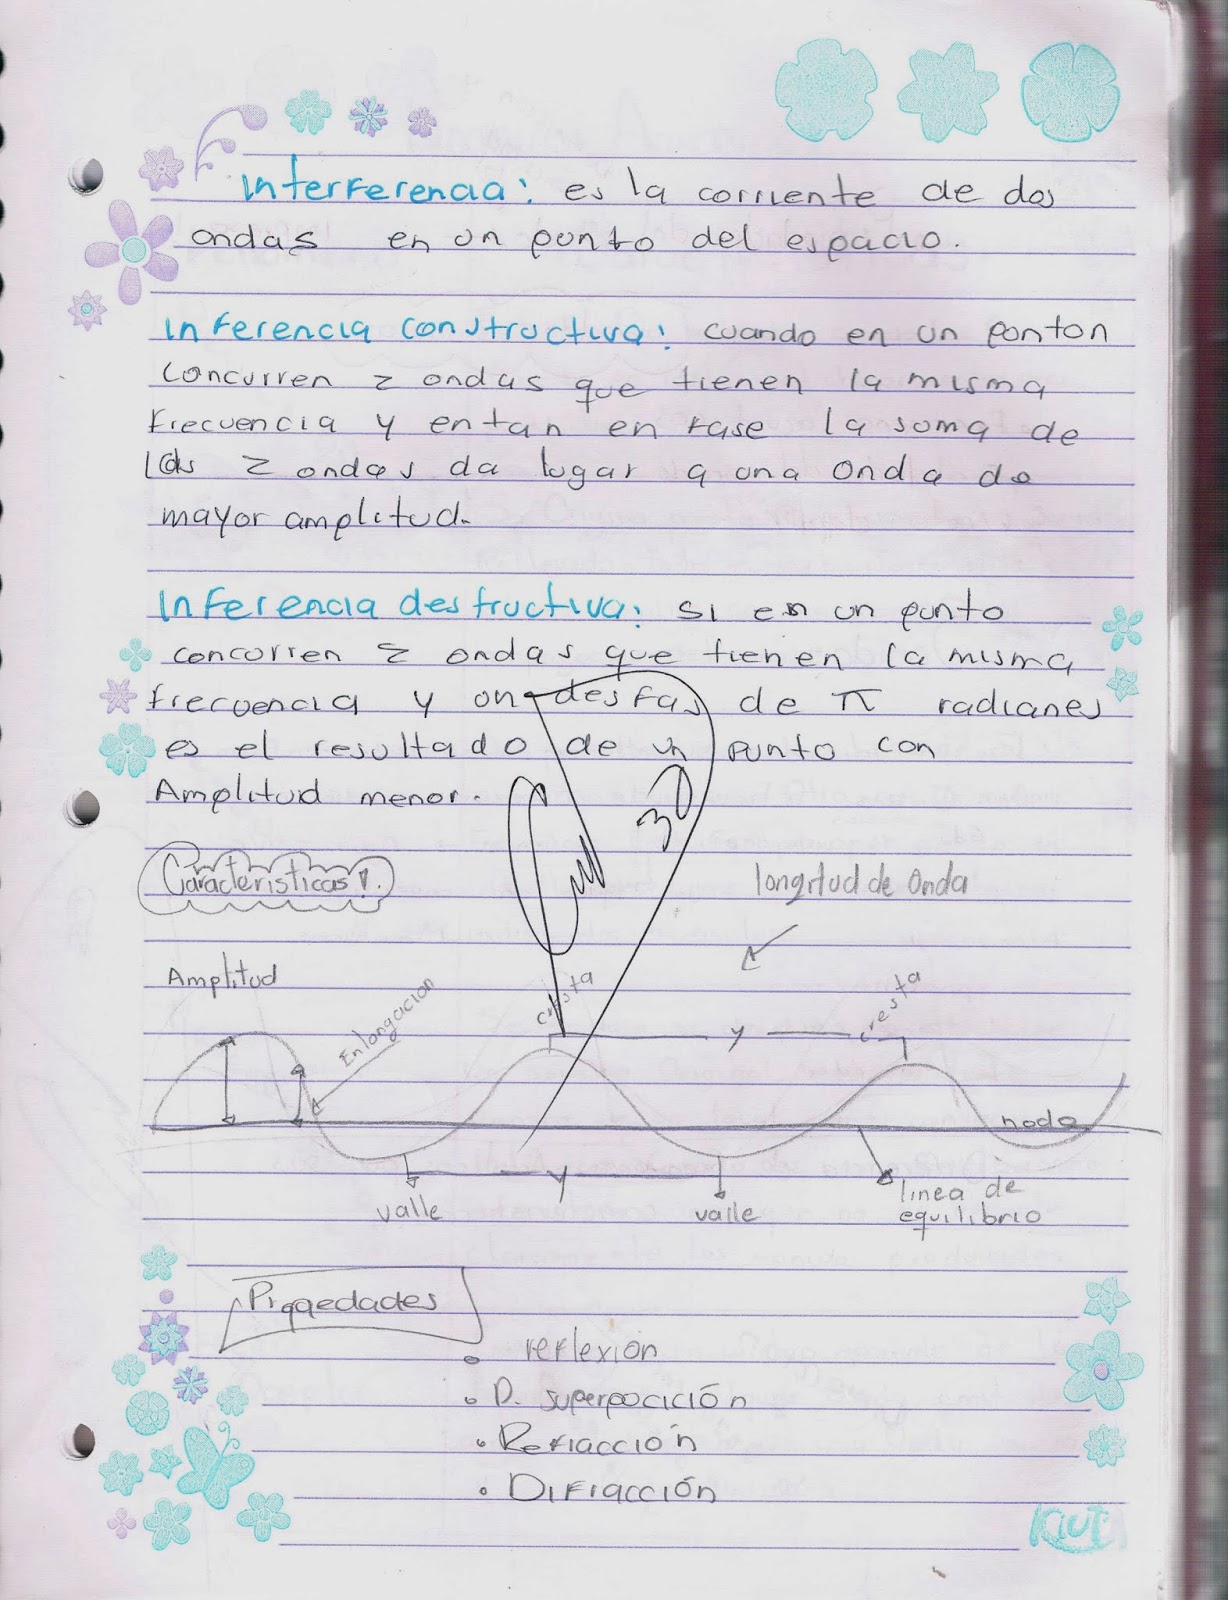 Interferencia: es la corriente de dos
ondas en un punto del espacio.
Inferencia constructiva: cuando en un ponton
concurren 2 ondas que tienen la misma
frecuencia y entan en fase la soma de
las 2 ondas da lugar a una onda de
mayor amplitud.
Inferencia destructiva: si en un punto
concurren 2 ondas que tienen la misma
frecuencia y un desfas de π radianes
es el resultado de un punto con
Amplitud menor.
30
Caracteristicas
longitud de onda
Amplitud
Enlongacion
cresta
cresta
y
nodo
y
valle
valle
linea de
equilibrio
Propedades
• reflexión
• D. superpocición
• Refracción
• Difracción
Kiut